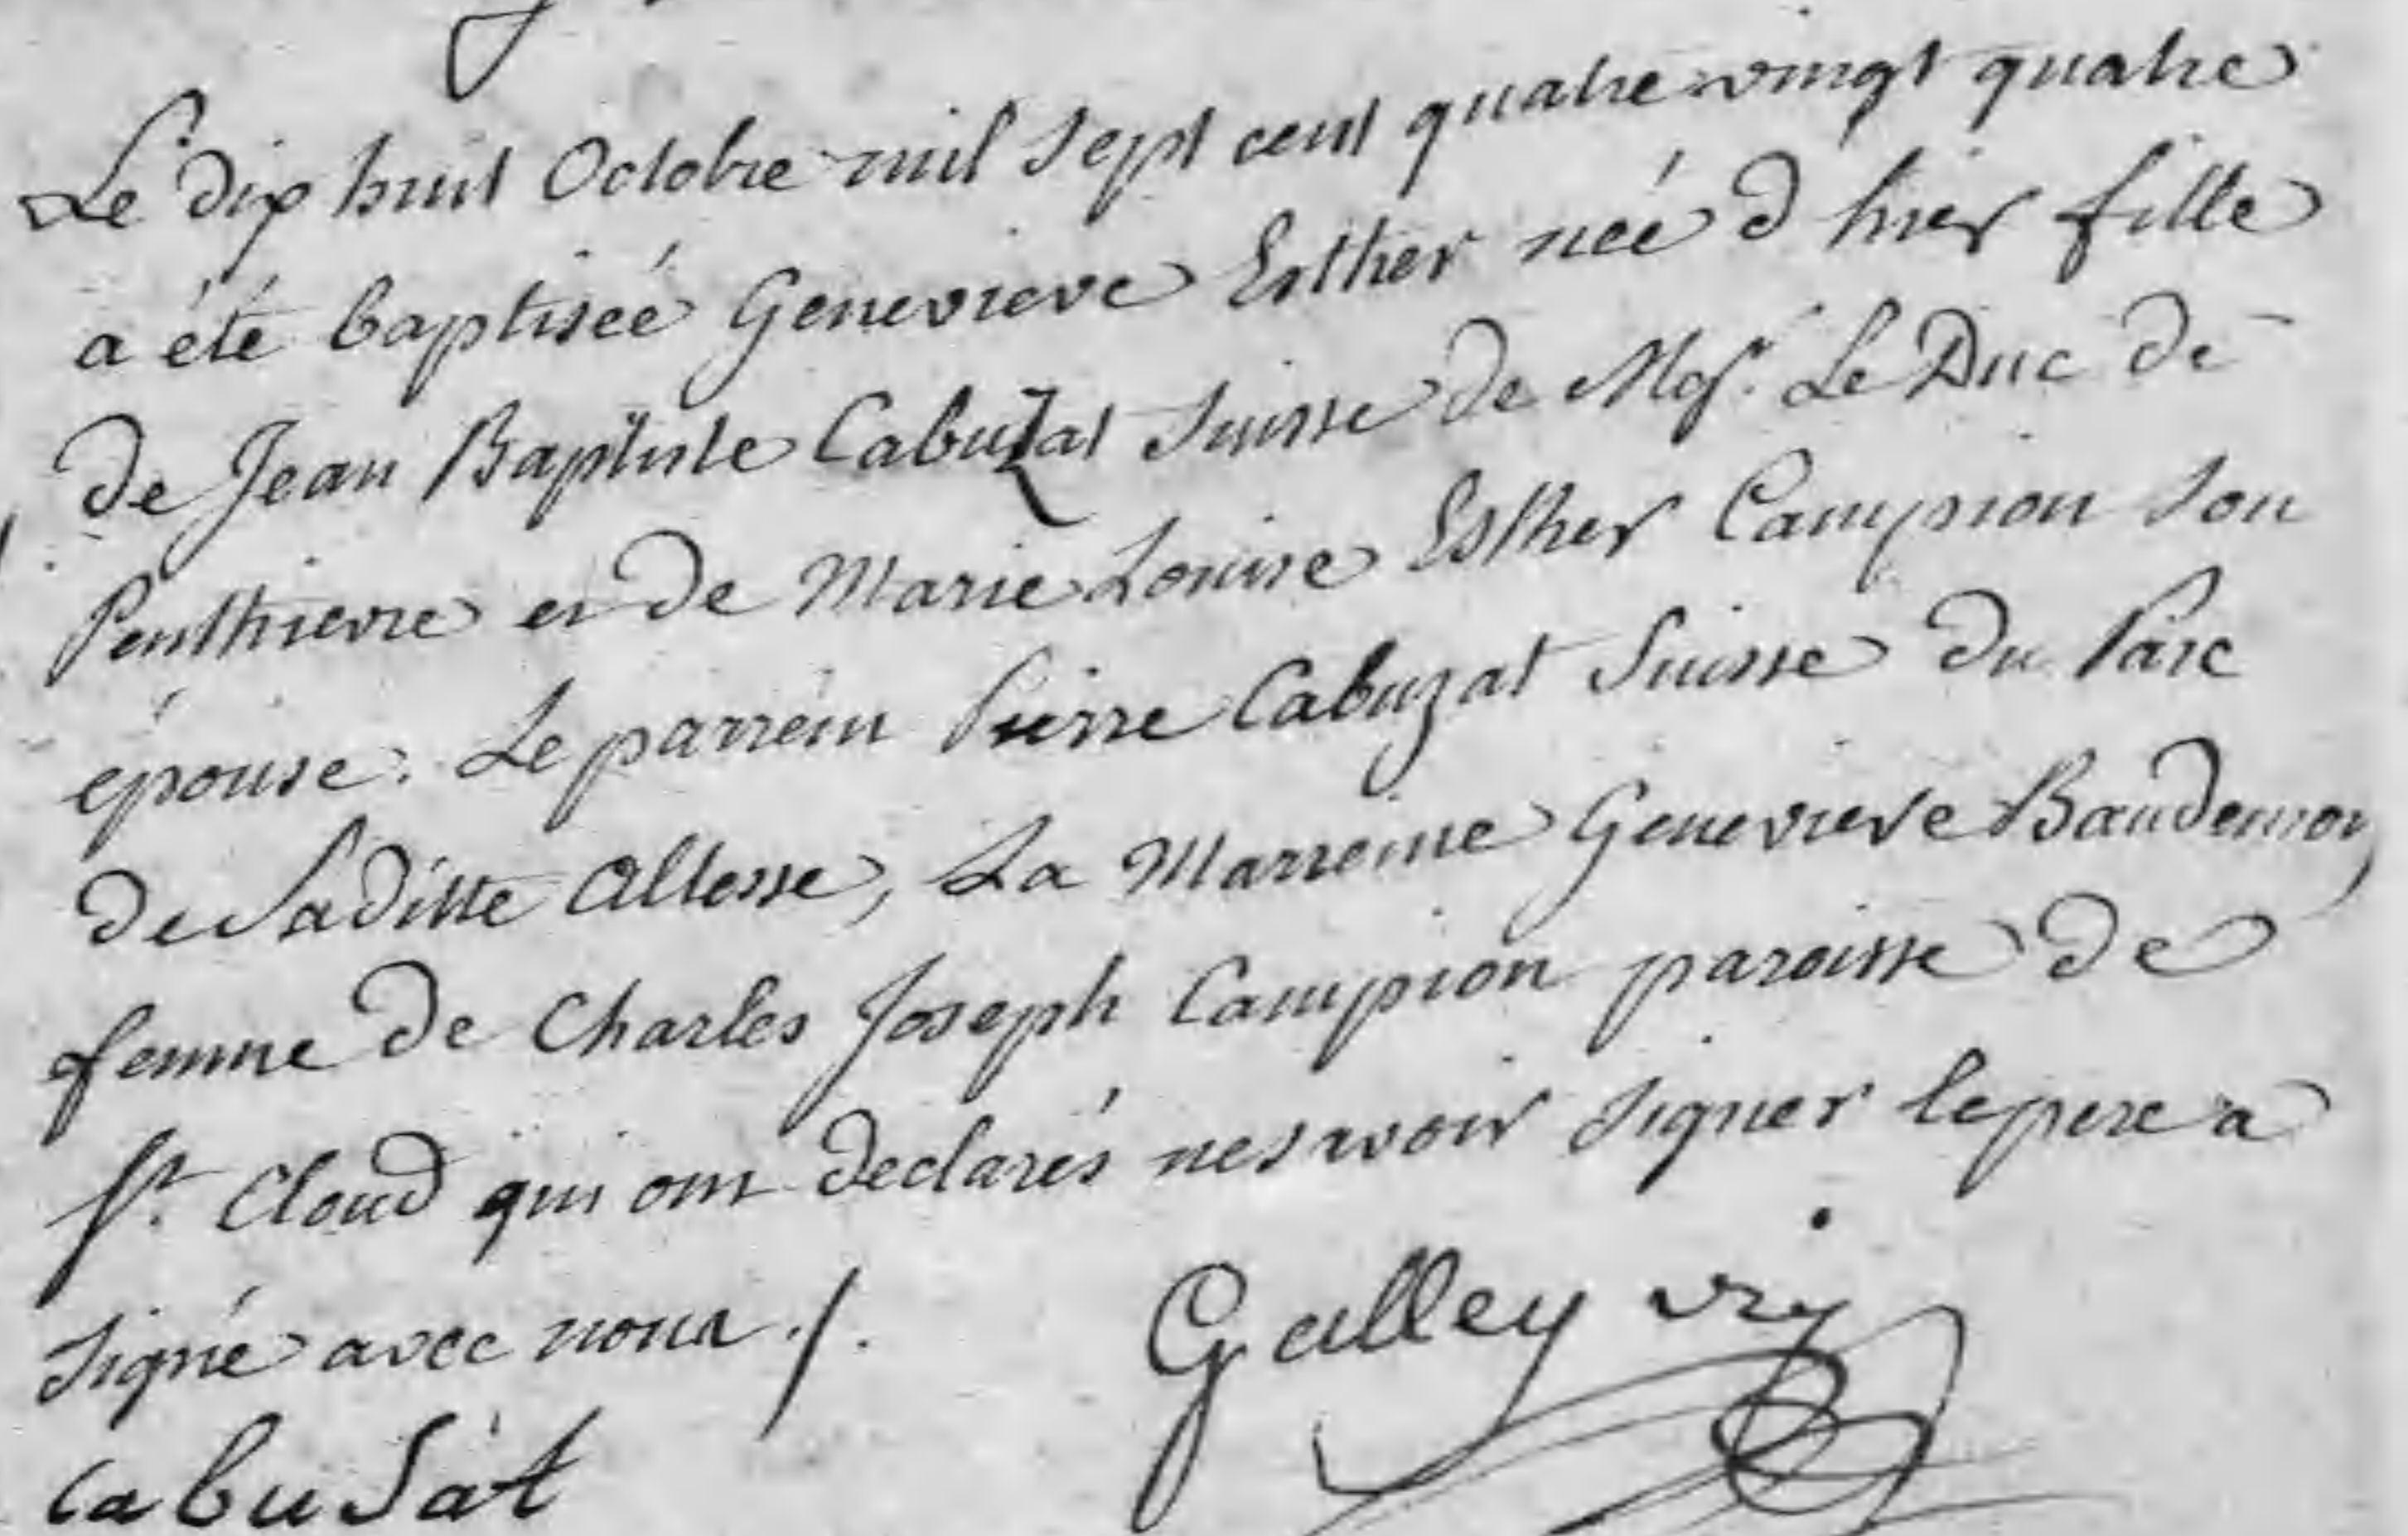 Le dix huit Octobre mil sept cent quatre vingt quatre
a été baptisée Genevieve Esther née d hier fille
de Jean Baptiste Cabuzat Suisse de Mgr. Le Duc de
Penthievre et de Marie Louise Esther Campion son
épouse. Le parrein Pierre Cabuzat Suisse du Parc
de Saditte Altesse, La Marreine Genevieve Baudemon
femme de Charles Joseph Campion paroisse de
St. Cloud qui ont declarés ne savoir signer le pere a
signé avec nous ./.
Galley
cabusat